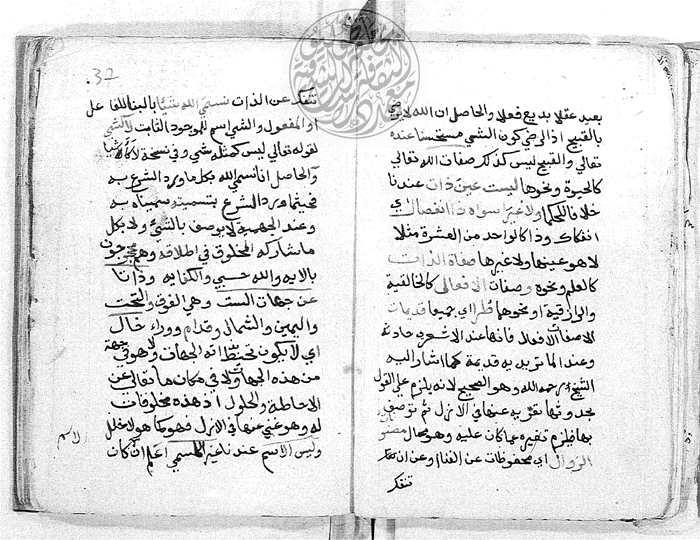 بعيد عقلا بديع فعلا والحاصل ان الله لا يرضى
بالقبيح اذ الرضى كون الشي مستحسنا عنده
تعالى والقبيح ليس كذلك صفات الله تعالى
كالحيوة ونحوها ليست عين ذات عندنا
خلافا للحكما ولا غيرا سواه ذا انفصال اي
انفكاك وذا كالواحد من العشرة مثلا
لا هو عينها ولا غيرها صفاة الذات
كالعلم ونحوه وصفات الافعال كالخالقية
والرازقية ونحوها طرا اي جميعا قديمات
الاصفات الافعال فانها عند الاشعري حادثة
وعند الماتريديه قديمة كما اشار اليه
الشيخ رحمه الله وهو الصحيح لانه يلزم على القول
بحدوثها تعريه عنها في الازل ثم توصف
بها فيلزم تغيره عما كان عليه وهو محال
الزوال اي محفوظات عن الفنا وعن ان
تنفك
37
تنفك عن الذات نسمي الله شيئا بالبنا للفاعل
او المفعول والشي اسم للموجود الثابت لا كالشي
لقوله تعالى ليس كمثله شي وفي نسخة لا كالاشيا
والحاصل انا نسمي الله بكل ما ورد الشرع به
فحيثما ورد الشرع بتسميته سميناه به
وعند الجهمية لا يوصف بالشي ولا بكل
ما شاركه المخلوق في اطلاقه وهم محجوجون
بالايه والله حسبي والكفايه وذاتا
عن جهات الست وهي الفوق والتحت
واليمين والشمال وقدام ووراء خال
اي لا يكون تحيط ذاته الجهات ولا هو في جهة
من هذه الجهات ولا في مكان ها تعالى عن
الاحاطة والحلول اذ هذه مخلوقات
له وهو غني عنها في الازل فهو كما هو لا خلل
وليس الاسم عندنا غير المسمى اعلم ان كان
الاسم